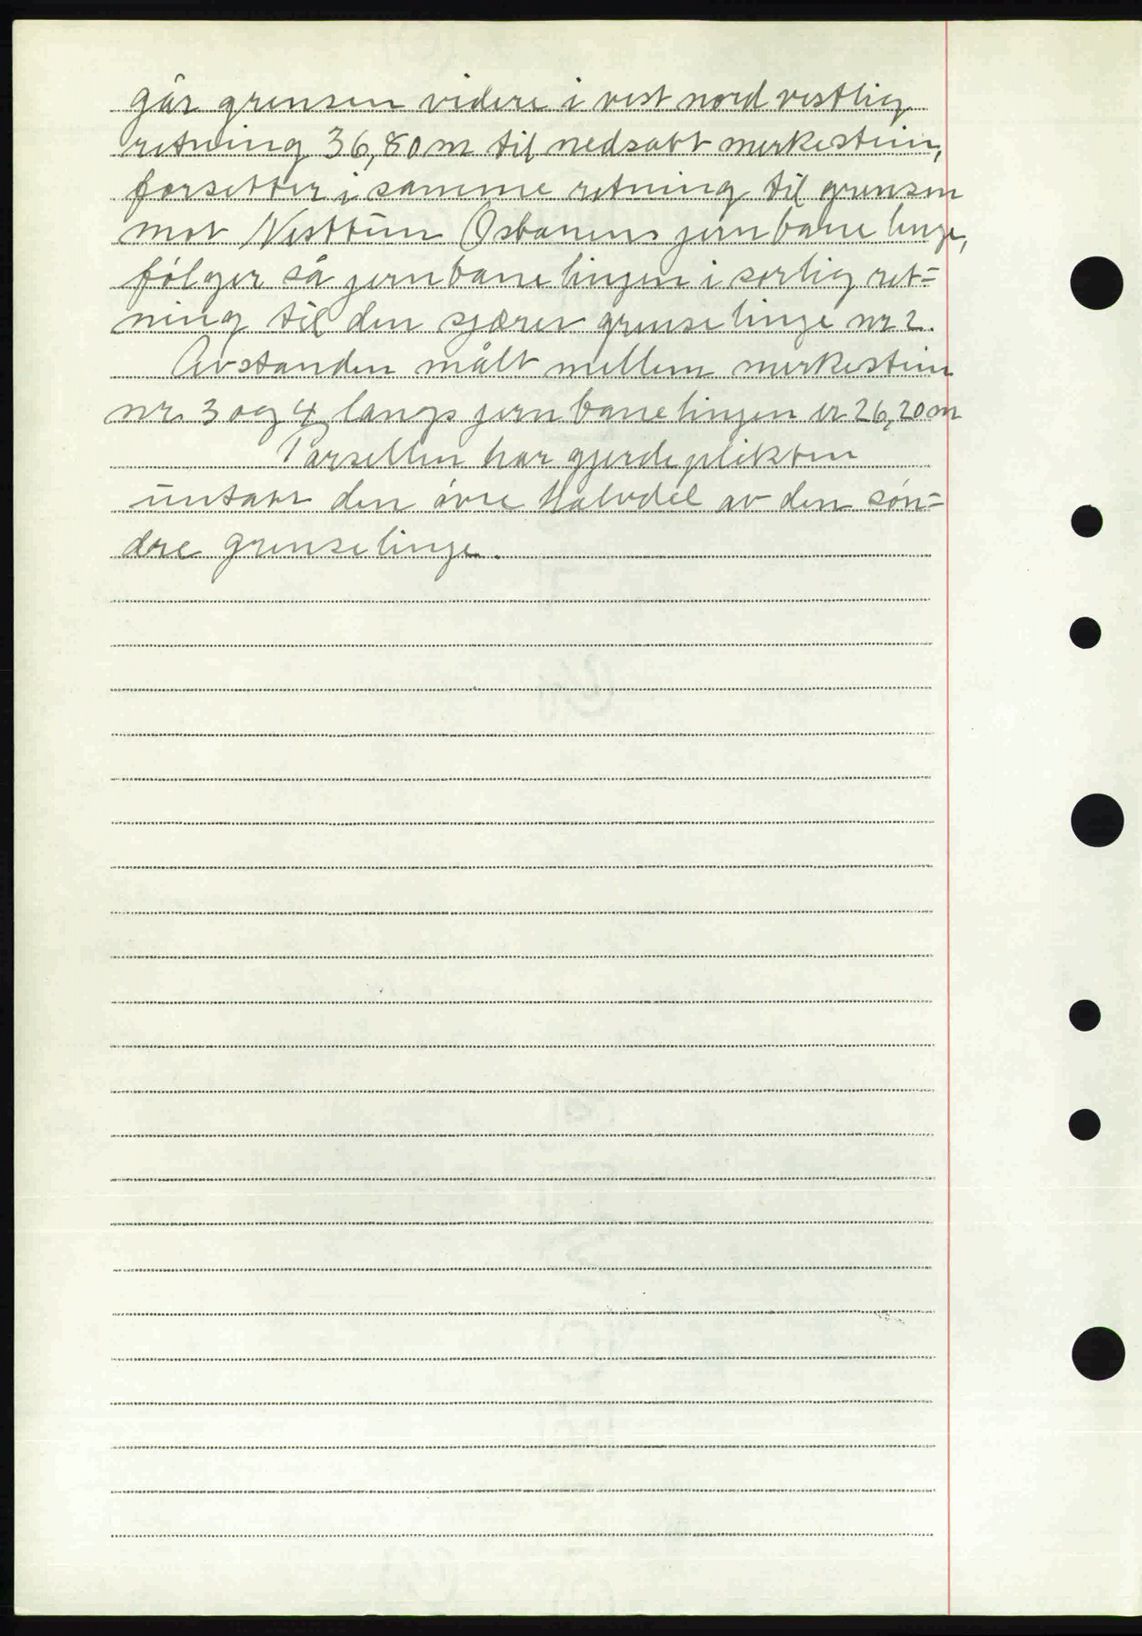 går grensen videre i vest nord vestlig
retning 36,80 m til nedsatt merkestein,
forsetter i samme retning til grensen
mot Nesttun Osbanens jernbane linje,
følger så jernbane linjen i sørlig ret=
ning til den sjærer grense linje nr 2.
Avstanden målt mellem merkestein
nr. 3 og 4 langs jernbane linjen er 26,20 m
Parsellen har gjerdeplikten
untatt den øvre Halvdel av den søn=
dre grenselinje.